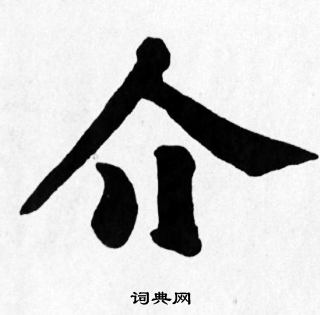 介
词典网